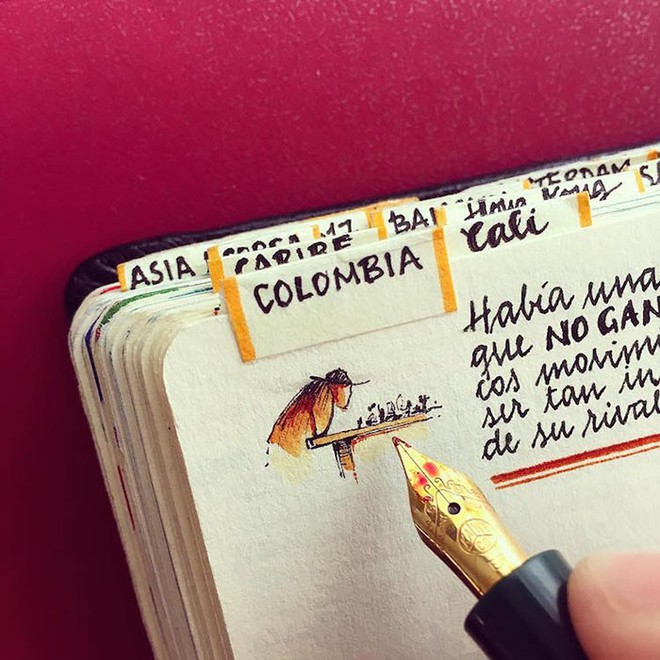 ASIA
CARIBE
COLOMBIA
Cali
Había una
que NO GAN
cos movim
ser tan in
de su rival